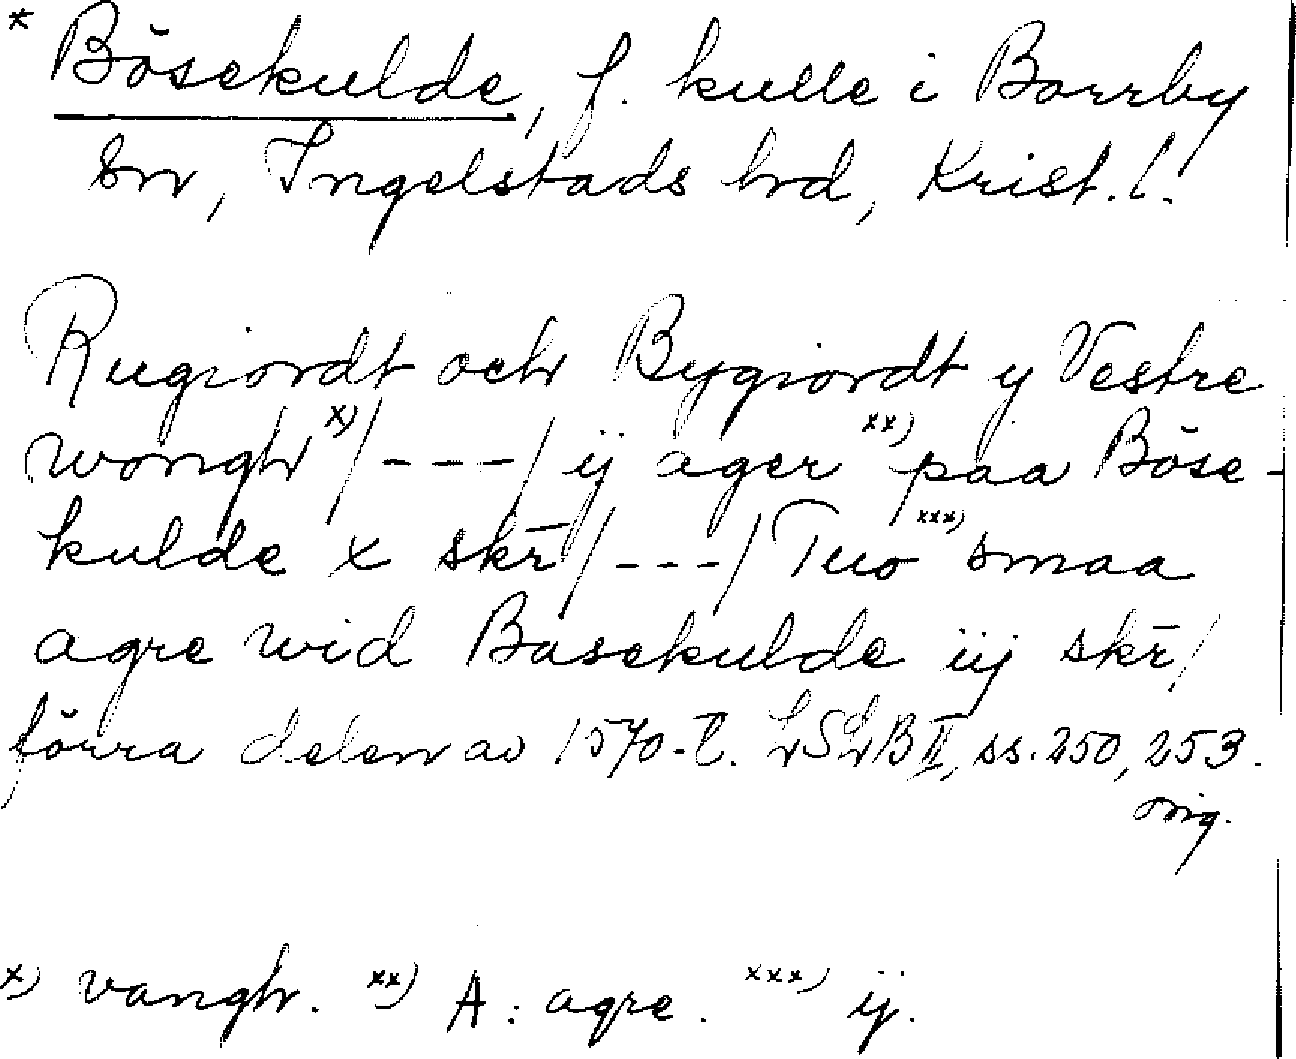 * Bösekulde, f. kulle i Borrby
sn, Ingelstads hd, Krist. l.
Rugiordt och Bygiordt y Vestre
wongh x) /---/ ij ager xx) paa Böse-
kulde x skr̄ /---/ Tuo xxx) smaa
agre wid Basekulde iij skr̄ /
förra delen av 1570-t. LSLB II, ss. 250, 253.
orig.
x) vangh. xx) A: agre. xxx) ij.